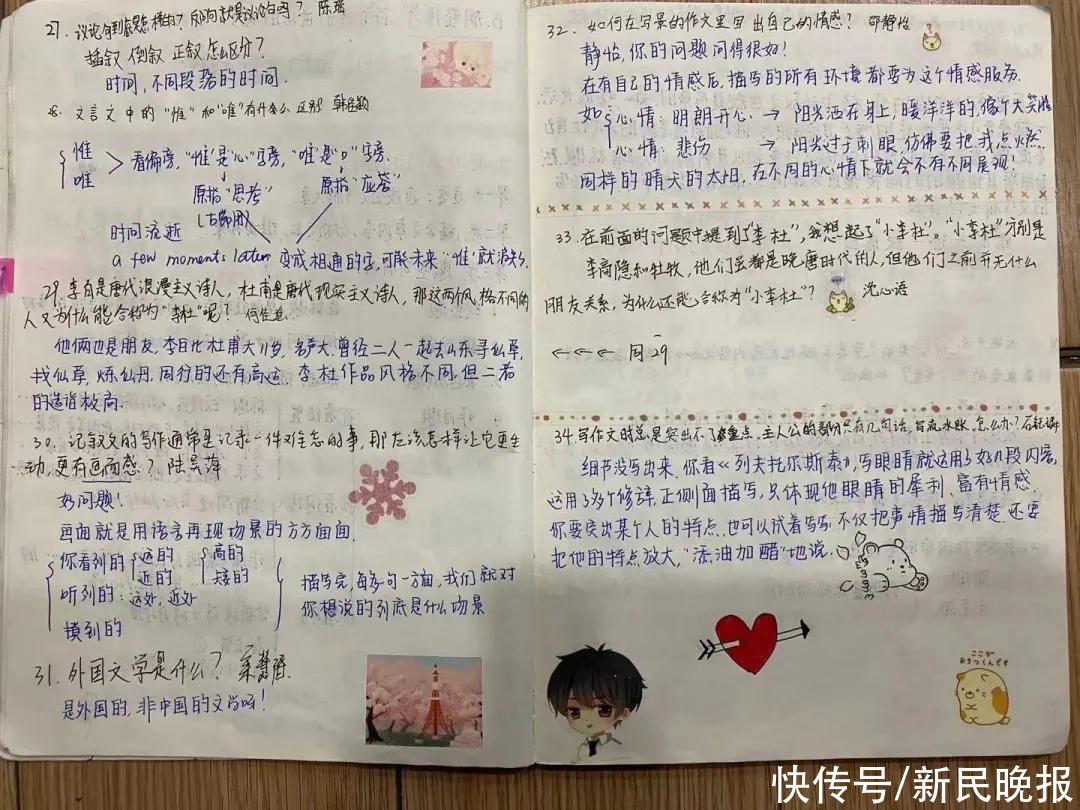 27. 议论句到底怎么样的？反问就是议论句吗？ 陈瑶
插叙 倒叙 正叙 怎么区分？
时间，不同段落的时间.
28. 文言文中的“惟”和“唯”有什么区别 韩
惟
唯
看偏旁，“惟”是“心”字旁，“唯”是“口”字旁.
原指“思考” 原指“应答”
时间流逝
a few moments later 变成相通的字，可能未来“惟”就消失了
29. 李白是唐代浪漫主义诗人，杜甫是唐代现实主义诗人，那这两个风格不同的
人又为什么能合称为“李杜”呢？
他俩也是朋友，李白比杜甫大11岁，名声大，曾经二人一起去山东寻仙草，
找仙草，炼仙丹，同行的还有高适. 李杜作品风格不同，但二者
的造诣极高.
30. 记叙文的写作通常是记录一件难忘的事，那应该怎样让它更生
动，更有画面感？ 陆昊萍
好问题！
画面就是用语言再现场景的方方面面.
你看到的 远的 近的 高的 矮的
听到的：远处，近处
摸到的
描写完，每多句一方面，我们就对
你想说的到底是什么场景
31. 外国文学是什么？
是外国的，非中国的文学呀！
32. 如何在写景的作文里写出自己的情感？ 邵静怡
静怡，你的问题问得很好！
在有自己的情感后，描写的所有环境都要为这个情感服务.
如 心情：明朗开心 → 阳光洒在身上，暖洋洋的，像个大笑脸
心情：悲伤 → 阳光过于刺眼，仿佛要把我点燃.
同样的晴天的太阳，在不同的心情下就会有不同展现！
33. 在前面的问题中提到了“李杜”，我想起了“小李杜”。“小李杜”分别是
李商隐和杜牧，他们虽都是晚唐时代的人，但他们之前并无什么
朋友关系，为什么还能合称为“小李杜”？ 沈心语
←←← 同29
34. 写作文时总是突出不了重点，主人公的部分只有几句话，写成流水账，怎么办？
细节没写出来. 你看《列夫托尔斯泰》，写眼睛就这用了好几段内容，
这用了多个修辞，正侧面描写，只体现他眼睛的犀利、富有情感.
你要突出某个人的特点，也可以试着写写，不仅把事情描写清楚，还要
把他的特点放大，“添油加醋”地说.
ここが
おきつくんです
快传号/新民晚报